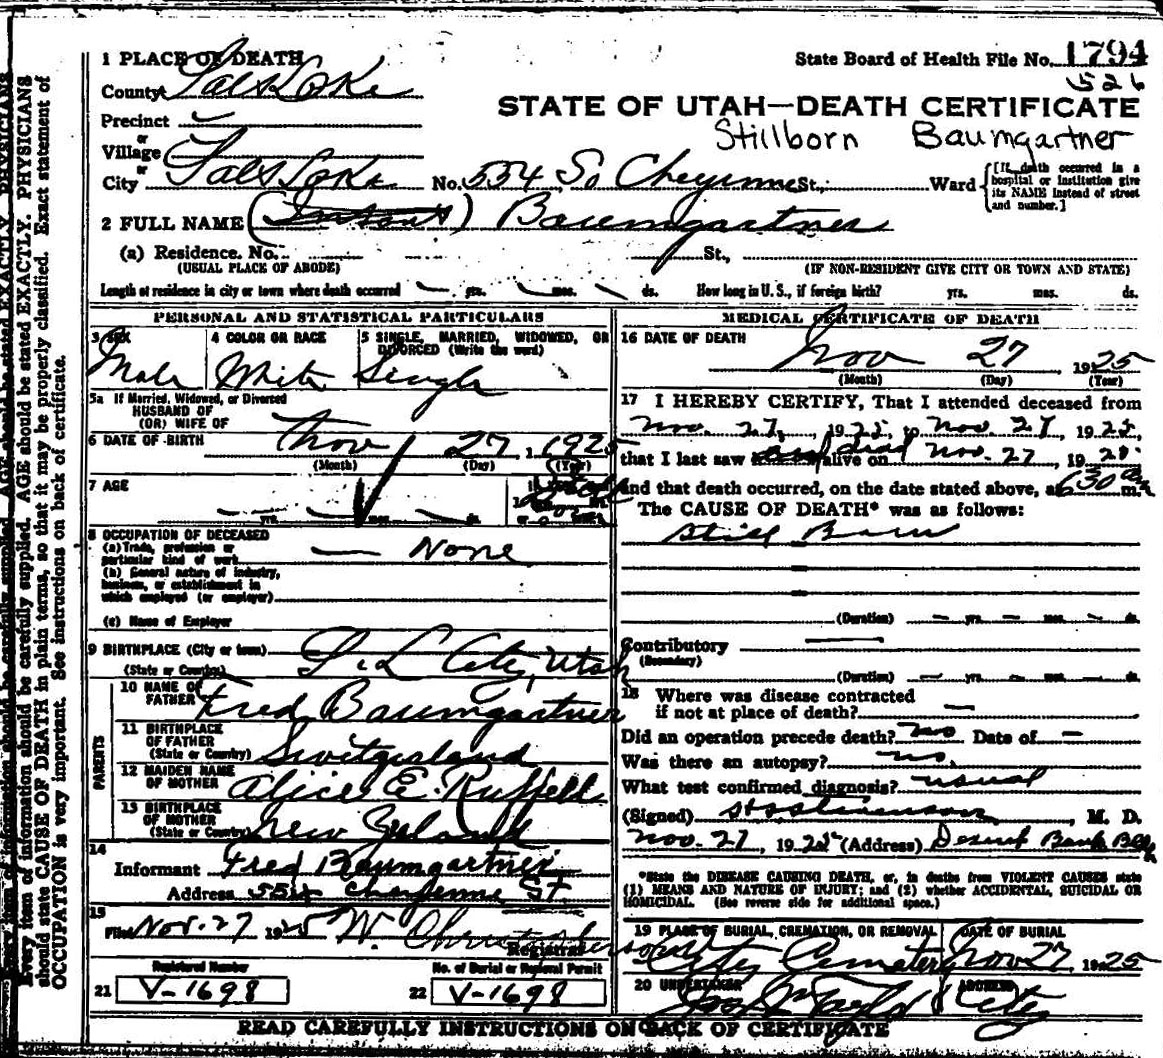 1 PLACE OF DEATH
State Board of Health File No. 1794
526
County Salt Lake
STATE OF UTAH—DEATH CERTIFICATE
Precinct
Stillborn Baumgartner
or
Village
or
City Salt Lake No. 554 So Cheyenne St.; Ward
[If death occurred in a hospital or institution give its NAME instead of street and number.]
2 FULL NAME (Infant) Baumgartner
(a) Residence. No. St.,
(USUAL PLACE OF ABODE) (IF NON-RESIDENT GIVE CITY OR TOWN AND STATE)
Length of residence in city or town where death occurred — yrs. — mos. — ds. How long in U. S., if foreign birth? yrs. mos. ds.
PERSONAL AND STATISTICAL PARTICULARS
3 SEX
Male
4 COLOR OR RACE
White
5 SINGLE, MARRIED, WIDOWED, OR
DIVORCED (Write the word)
Single
5a If Married, Widowed, or Divorced
HUSBAND OF
(OR) WIFE OF
6 DATE OF BIRTH Nov 27 1925
(Month) (Day) (Year)
7 AGE
— yrs. — mos. — ds.
8 OCCUPATION OF DECEASED
(a) Trade, profession or
particular kind of work — None
(b) General nature of industry,
business, or establishment in
which employed (or employer)
(c) Name of Employer
9 BIRTHPLACE (City or town) S. L. City, Utah
(State or Country)
PARENTS
10 NAME OF
FATHER Fred Baumgartner
11 BIRTHPLACE
OF FATHER
(State or Country) Switzerland
12 MAIDEN NAME
OF MOTHER Alice E. Ruffell
13 BIRTHPLACE
OF MOTHER
(State or Country) New Zeland
14
Informant Fred Baumgartner
Address 554 Cheyenne St.
15
Filed Nov. 27 1925 W. Christopherson
Registrar
Registered Number
21 V-1698
No. of Burial or Removal Permit
22 V-1698
MEDICAL CERTIFICATE OF DEATH
16 DATE OF DEATH
Nov 27 1925
(Month) (Day) (Year)
17 I HEREBY CERTIFY, That I attended deceased from
Nov. 27, 1925, to Nov. 27, 1925,
that I last saw alive on Nov. 27, 1925.
and that death occurred, on the date stated above, at 6 30 am.
The CAUSE OF DEATH* was as follows:
Still Born
(Duration) — yrs. — mos. — ds.
Contributory —
(Secondary)
(Duration) — yrs. — mos. — ds.
18 Where was disease contracted
if not at place of death? —
Did an operation precede death? no Date of —
Was there an autopsy? no.
What test confirmed diagnosis? usual
(Signed) , M. D.
Nov. 27, 1925 (Address) Deseret Bank Bldg
*State the DISEASE CAUSING DEATH, or, in deaths from VIOLENT CAUSES state
(1) MEANS AND NATURE OF INJURY; and (2) whether ACCIDENTAL, SUICIDAL OR
HOMICIDAL. (See reverse side for additional space.)
19 PLACE OF BURIAL, CREMATION, OR REMOVAL
City Cemetery
DATE OF BURIAL
Nov 27 1925
20 UNDERTAKER
Jos Wm Taylor
ADDRESS
City
READ CAREFULLY INSTRUCTIONS ON BACK OF CERTIFICATE
Every item of information should be carefully supplied. AGE should be stated EXACTLY. PHYSICIANS
should state CAUSE OF DEATH in plain terms, so that it may be properly classified. Exact statement of
OCCUPATION is very important. See instructions on back of certificate.